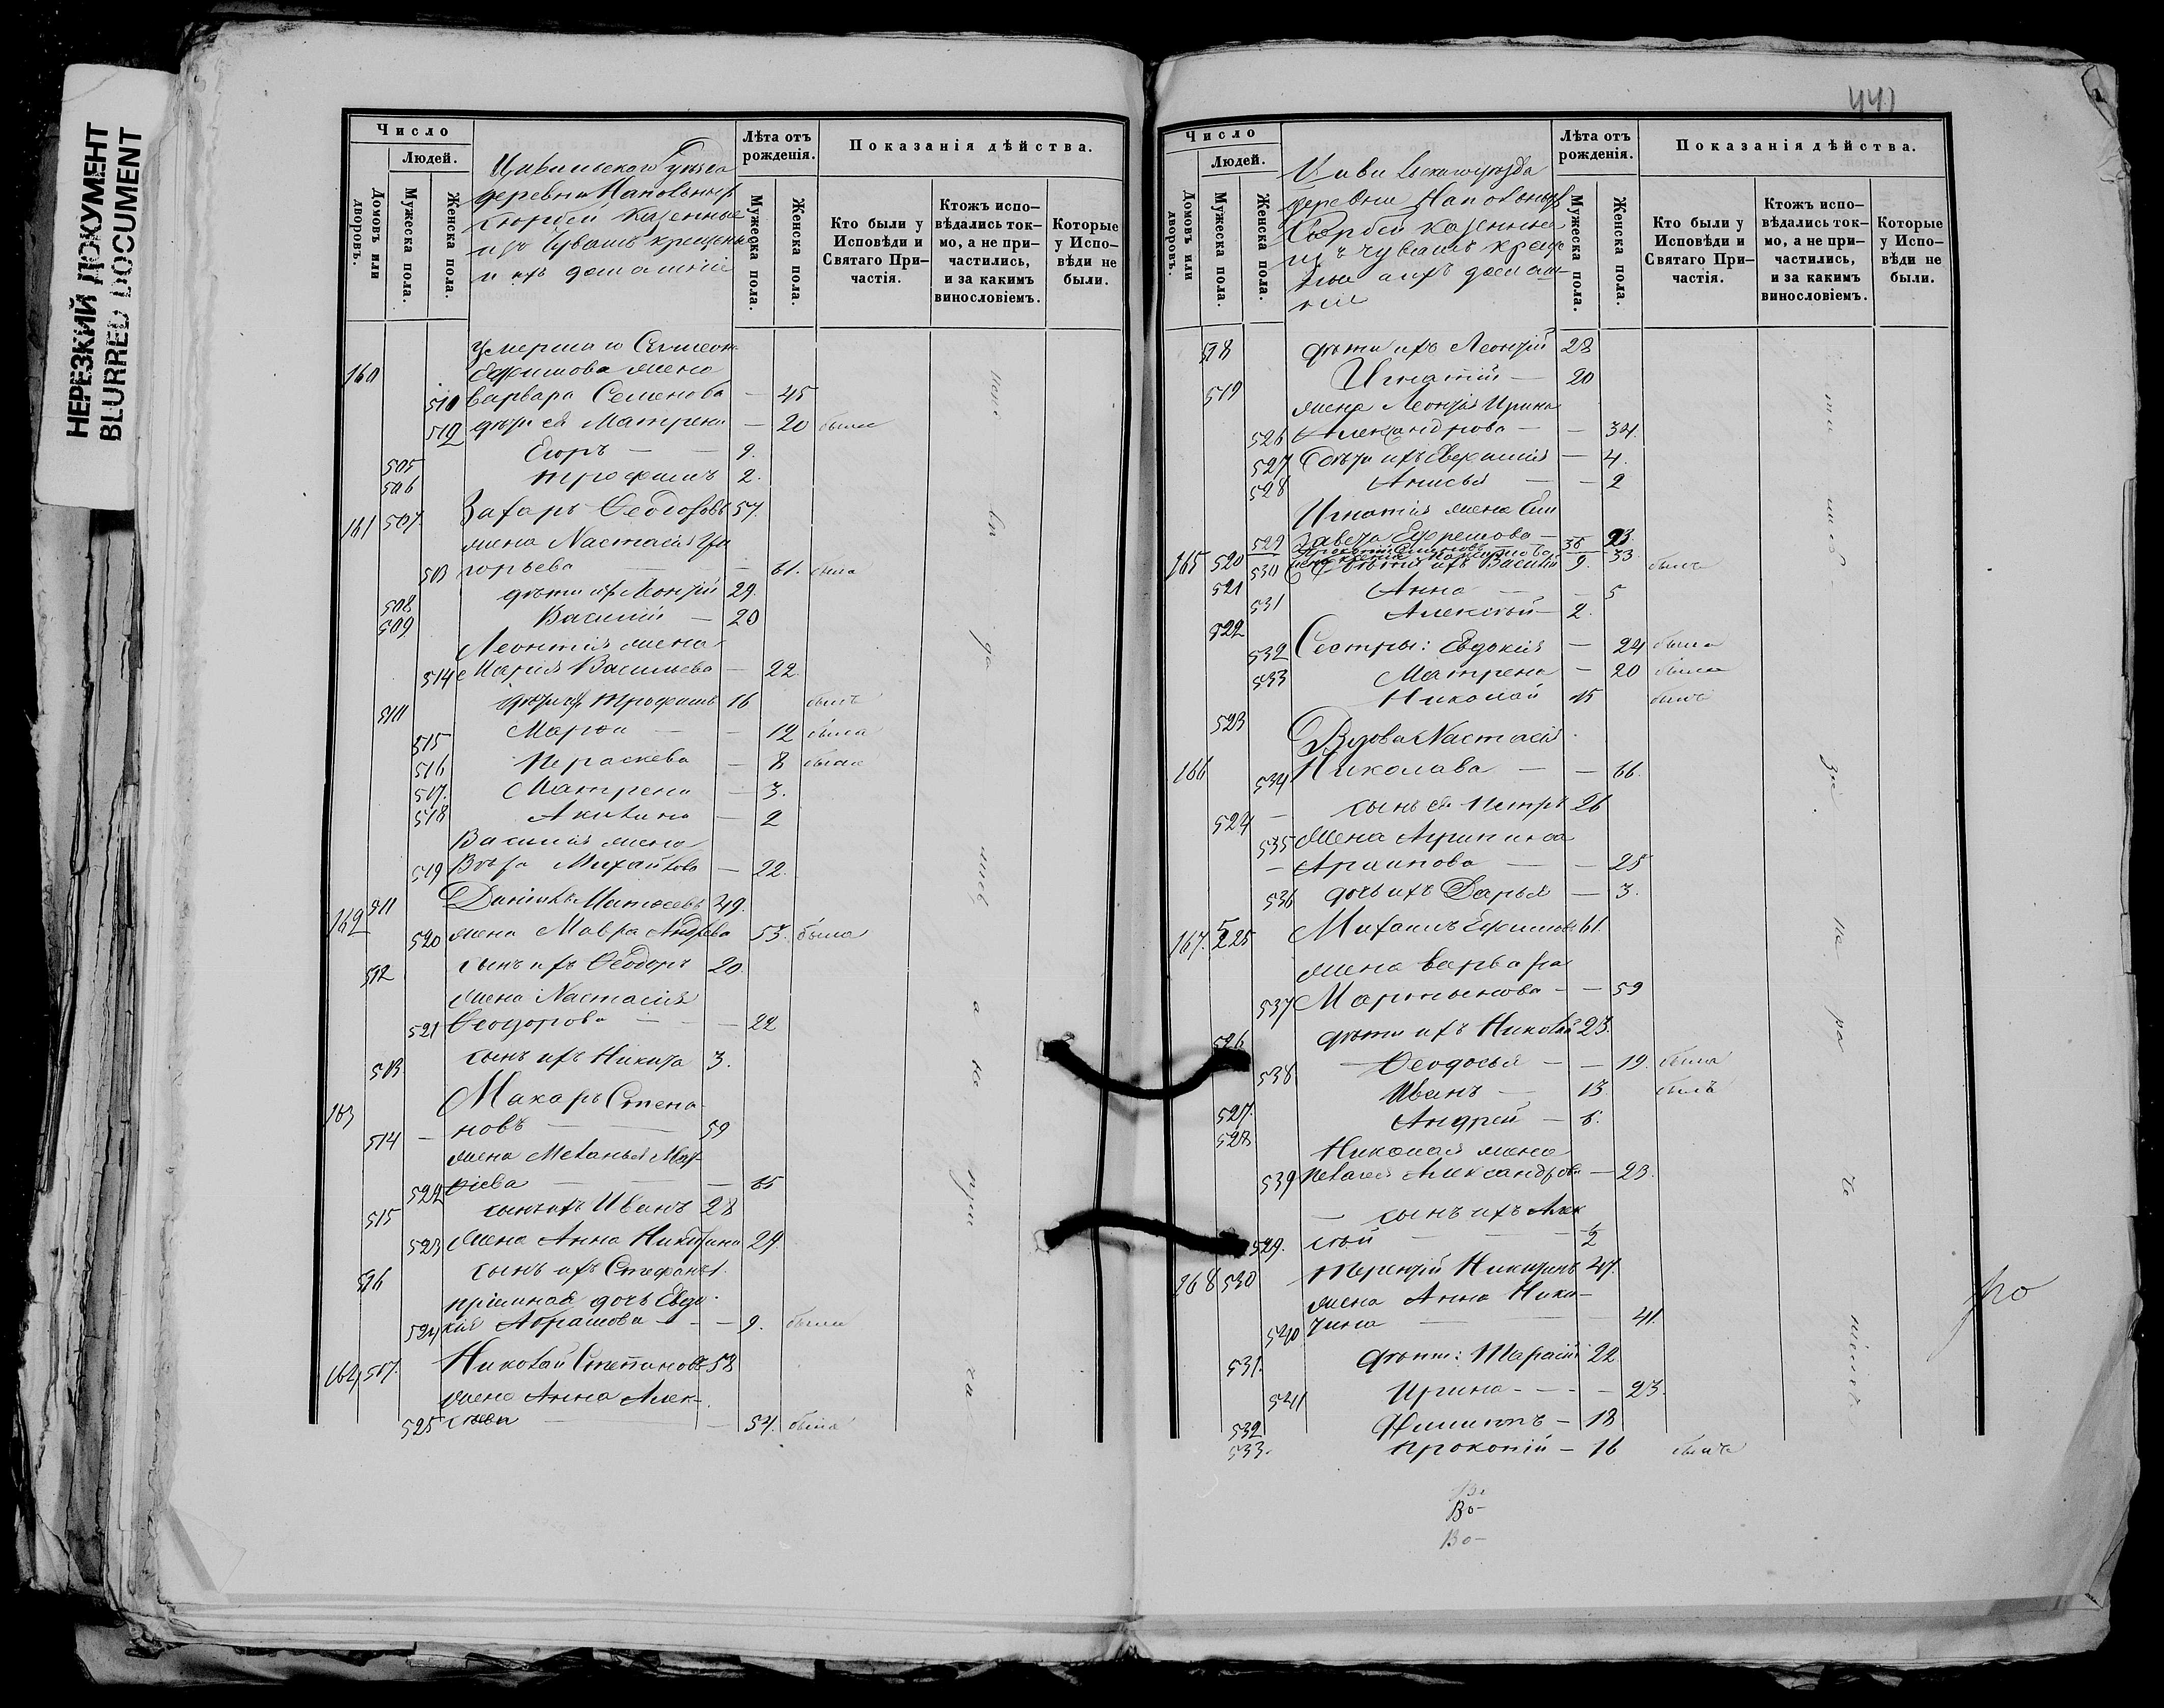 НЕРЕЗКИЙ ДОКУМЕНТ
BLURRED DOCUMENT
Число
Людей.
Домовъ или дворовъ.
Мужеска пола.
Женска пола.
Цивильскаго уѣзда
деревни Напольныхъ
казенные
изъ Чувашъ крещеные
и ихъ домашніе
Лѣта отъ рожденія.
Мужеска пола.
Женска пола.
Показанія дѣйства.
Кто были у Исповѣди и Святаго Причастія.
Ктожъ исповѣдались токмо, а не причастились, и за какимъ винословіемъ.
Которые у Исповѣди не были.
160 умершаго Симеона
Ефимова жена
510 Варвара Семенова — 45
512 дѣти ея Матрена — 20 была
505 Егоръ — 9.
506 Трофимъ 2.
161 507. Захаръ Ѳеодоровъ 57.
жена Настасія Гри
513 горьева — 61. была
508 дѣти ихъ Леонтій 29.
509 Василій — 20
Леонтія жена
514 Марія Васильева — 22.
510 дѣти ихъ Трофимъ 16 былъ
515 Марѳа — 12 была
516 Параскева — 8 была
517. Матрена — 3.
518 Акилина — 2
Василія жена
519 Вѣра Михайлова — 22.
162 511 Даніилъ Матѳеевъ 49.
520 жена Мавра Андреева 53. была
512 сынъ ихъ Ѳеодоръ 20.
жена Настасія
521 Ѳеодорова — 22
513 сынъ ихъ Никита 3.
163 Макаръ Степа-
514 — новъ — 59
жена Меланья Мат-
522 ѳіева — 65
515 сынъ ихъ Иванъ 28
523 жена Анна Никитина 29.
516 сынъ ихъ Стефанъ 1.
пріемная дочь Евдо-
524 кія Абрамова — 9. была
164 517. Николай Степановъ 58
жена Анна Алек-
525 сѣева — 54. была
441
Число
Людей.
Домовъ или дворовъ.
Мужеска пола.
Женска пола.
Цивильскаго уѣзда
деревни Напольныхъ
казенные
изъ чувашъ креще
ные и ихъ домаш-
ніе
Лѣта отъ рожденія.
Мужеска пола.
Женска пола.
Показанія дѣйства.
Кто были у Исповѣди и Святаго Причастія.
Ктожъ исповѣдались токмо, а не причастились, и за какимъ винословіемъ.
Которые у Исповѣди не были.
518 дѣти ихъ Леонтій 28
519 Игнатій — 20
жена Леонтія Ирина
526 Александрова — 34.
527 Дѣти ихъ Евфимія — 4.
528 Анисья — 2
Игнатія жена Ели
529 завета Ефремова — 23
165 520 530 36 33
521 дѣти ихъ Василій 9. былъ
531 Анна — 5
522 Алексѣй — 2.
532 Сестры: Евдокія — 24 была
533 Матрена — 20 была
523 Николай 15 былъ
Вдова Настасія
166 534 Николаева — 66.
524 — сынъ ея Петръ 26
535 Жена Агрипина
— 25
536 дочь ихъ Дарья — 3.
167. 525 Михаилъ Ефимовъ 61.
жена Варвара
537 Мартынова — 59
526 дѣти ихъ Николай 23.
538 Ѳеодосья — 19. была
527. Иванъ — 13 былъ
528 Андрей — 6.
Николая жена
539 Пелагея Александрова — 23.
— сынъ ихъ Алек
529. сѣй — 1/2
168 530 Терентій Никитинъ 47.
жена Анна Ники-
540 тина — 41.
531. дѣти: Тарасій 22
541 Ирина — 23.
532 Филиппъ — 18
533. Прокопій — 16 былъ
Во-
Во-